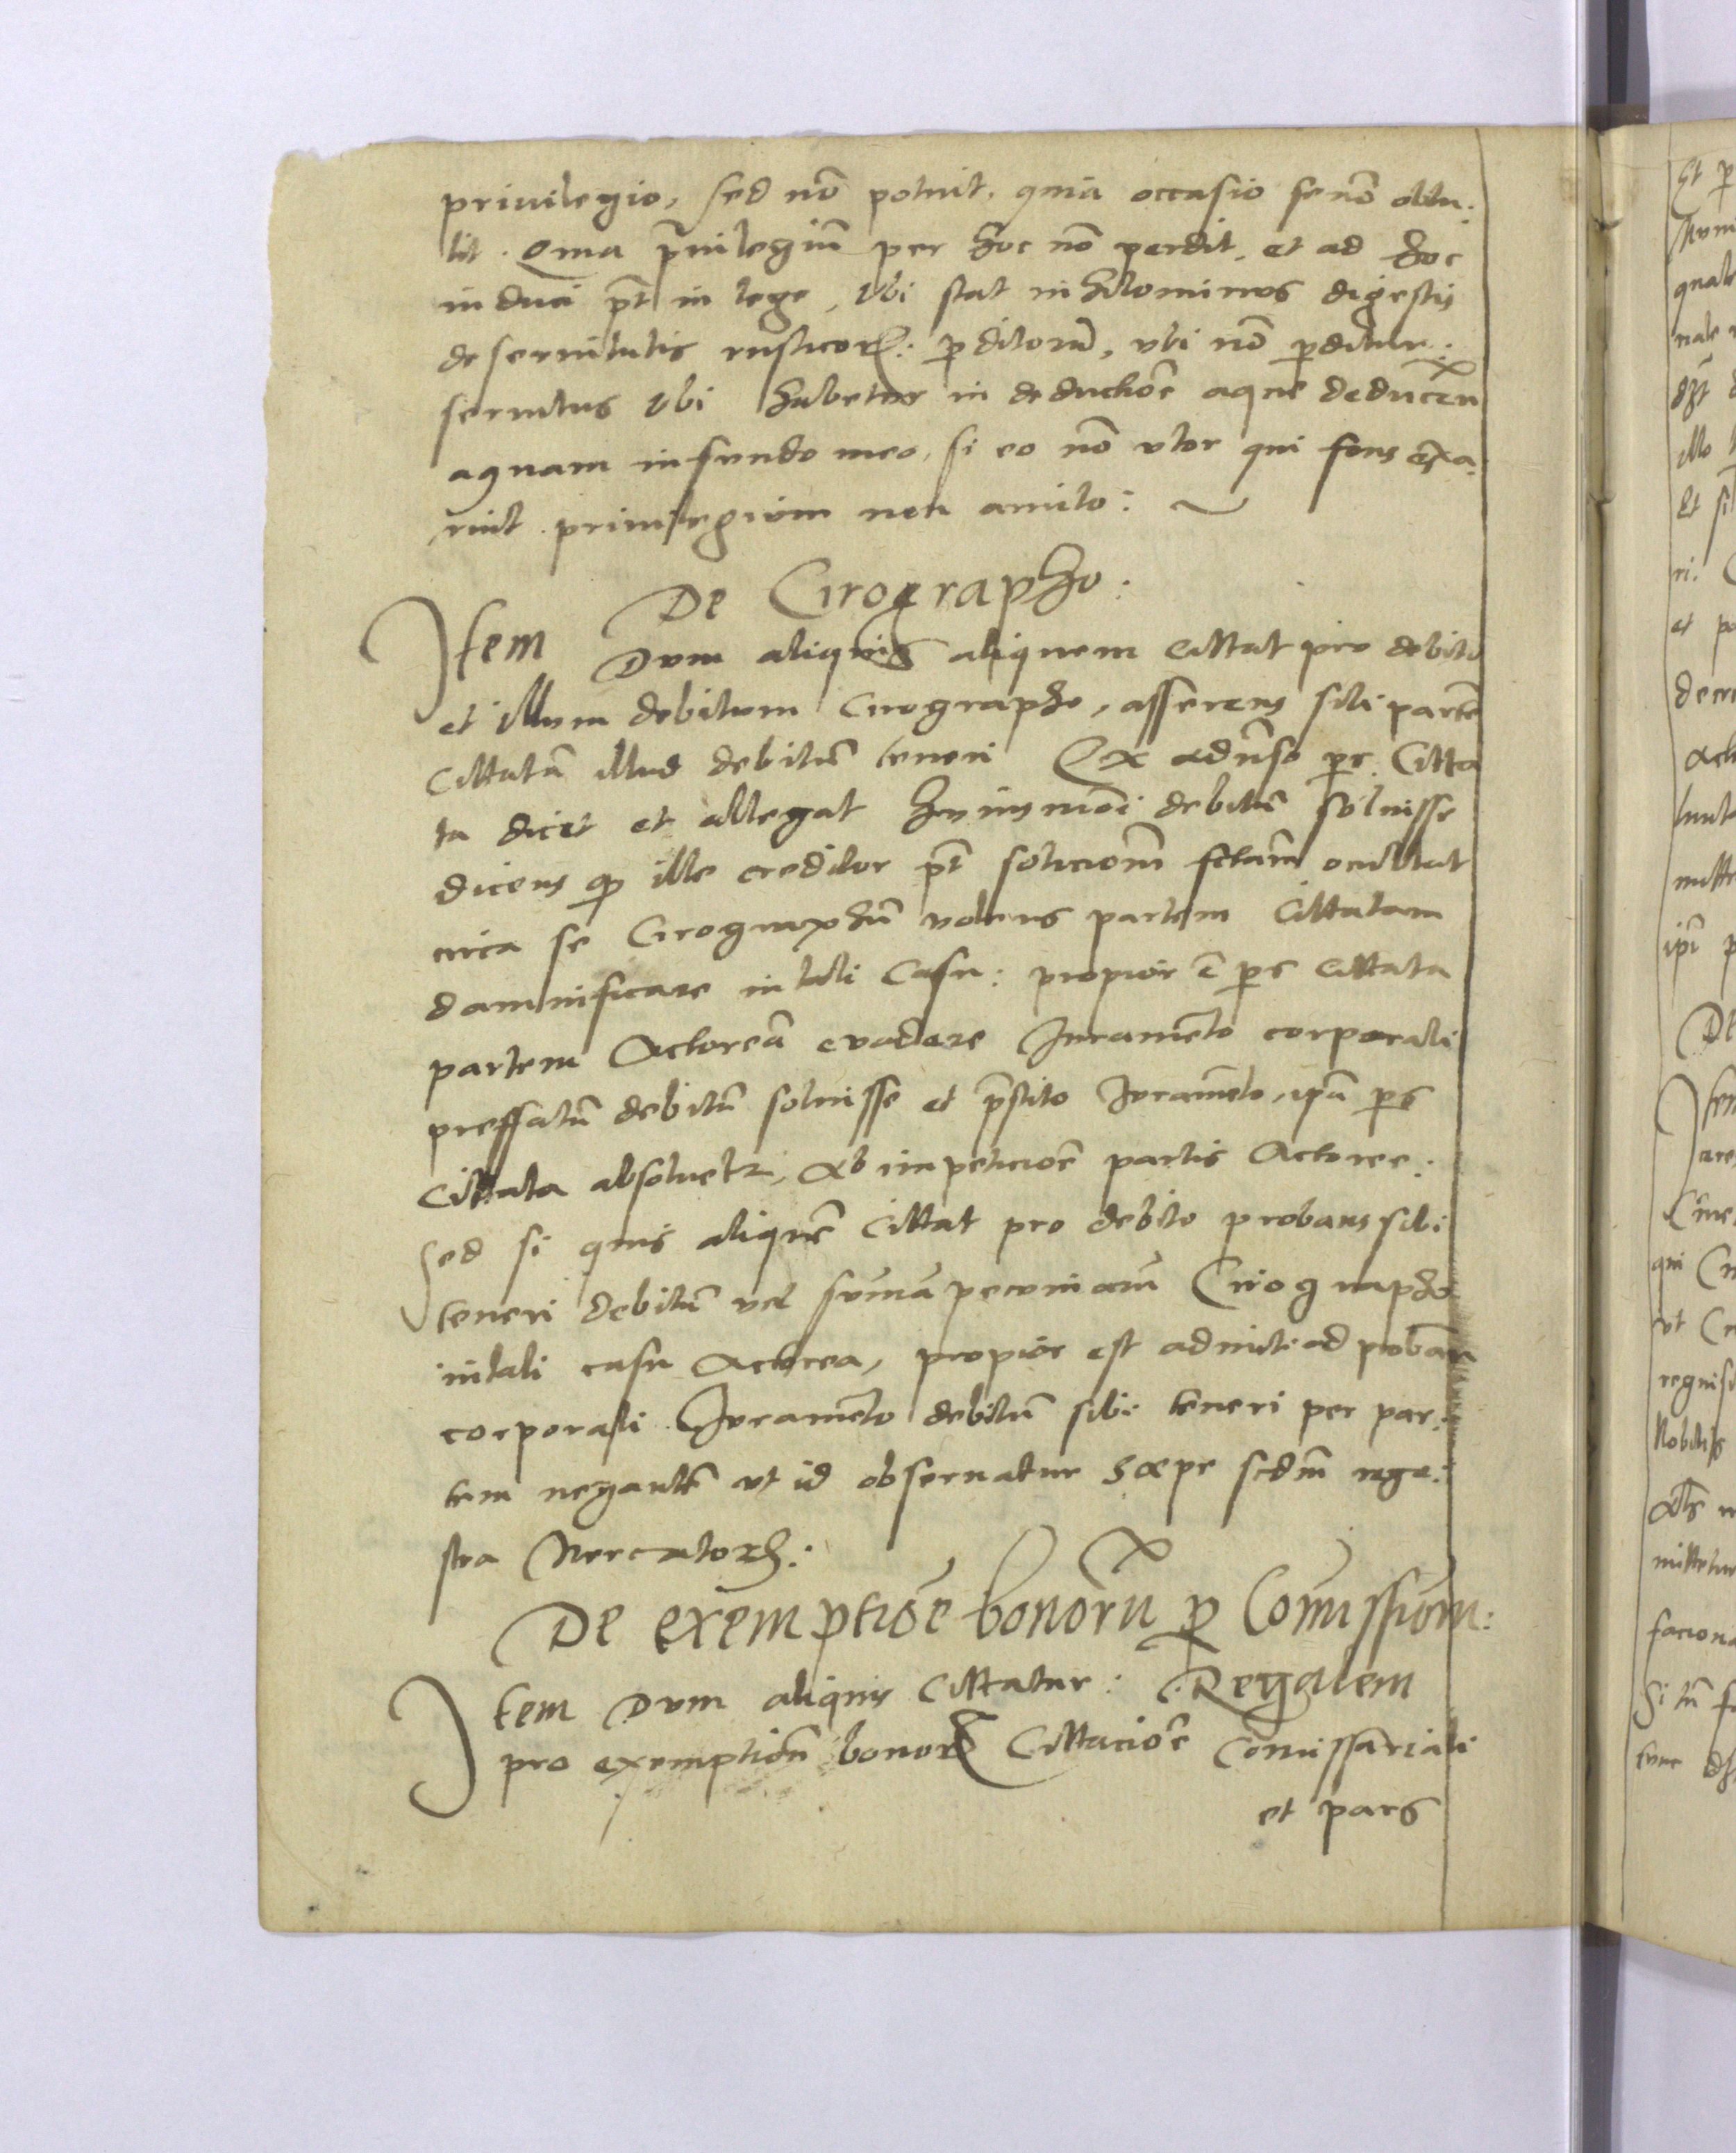 priuilegio, sed nō potuit. quia occasio se nō obtu:
lit. Quia p̄uilegiū per hoc nō perdit, et ad hoc
induci pt̄ in lege, Vbi stat nihilominus digestis
de seruitutis rusticoꝝ: p̱ditorū, vbi nō p̱ditur:
seruitus Vbi habetur in deductiōe aque deducēn
aquam in fundo meo, si eo nō vtor qui fons exa:
ruit. priuilegium non amito:
De Cirographo:
Item Dum aliquis aliquem Cittat pro debito
et illum debitum Cirographo, asserens sibi partē
Cittatā illud debitū teneri Ex aduerso pars Citta
ta dicit et allegat huiusmōi debitū soluisse
dicens ꝙ ille creditor pt̄ soluciōm fctām ocultat
circa se Cirographū volens partem Cittatam
damnificare in tali Casu: propior ē pars Cittata
partem Actoreā evadere Juramēto corporali
preffatū debitū soluisse et p̄stito Juramēto, ipā pars
Cittata absoluetr, Ab impeticiōe partis Actoree:
Sed si quis aliquē Cittat pro debito probans sibi
teneri debitū vel sūmā pecuniariā Cirographo
in tali casu Actorea, propior est admiti ad proban̄
corporali Juramēto debitū sibi teneri per par:
tem negantē vt id obseruatur Sæpe scdm̄ rege:
stra Mercatorꝝ:
De exemptiōe bonorū ꝑ Com̄issiōm:
Item Dum aliquis Cittatur: Regalem
pro exemptiōn bonorꝝ Cittaciōe Comissariali
et pars